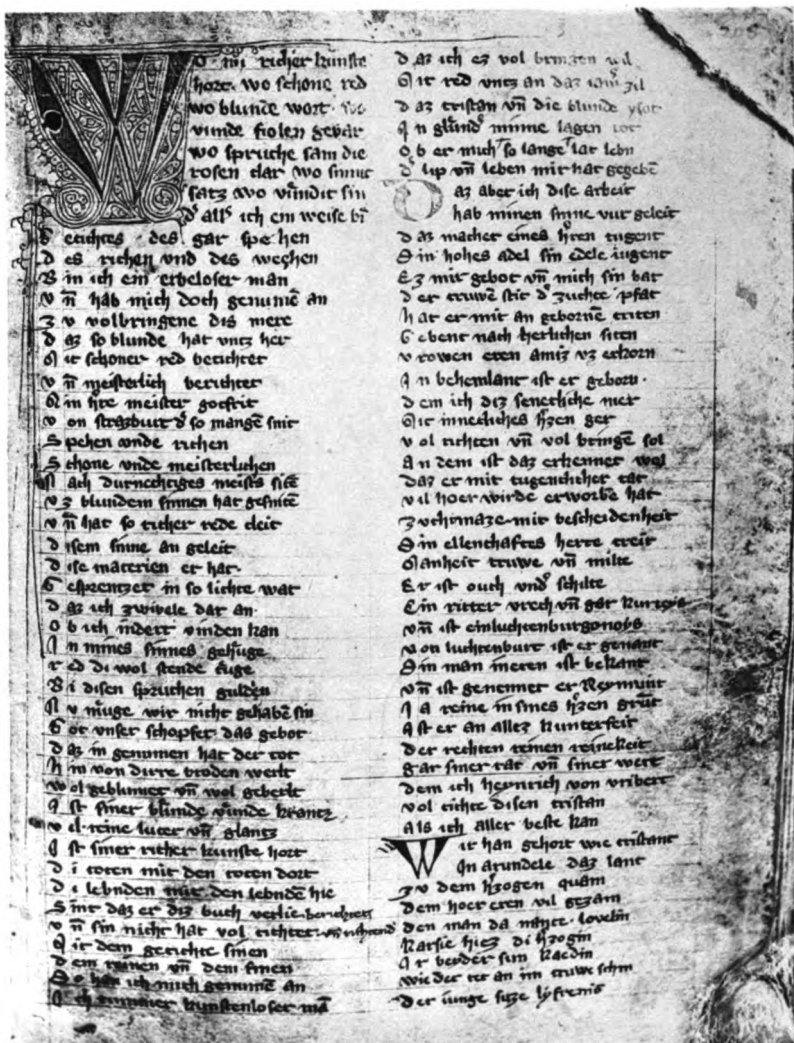 Wo nu richer kunste
hort· wo schone red
wo blunde wort· wo
vunde fiolen gevar
wo spruche sam die
rosen clar wo sinnic
satz wo vündic sin
dˢ allˢ ich ein weise bī
Getichtes· des gar spehen
des richen vnd des wechen
Bin ich ein erbeloser man
vn̄ hab mich doch genumē an
zv volbringene dis mere
daz so blunde hat vntz her
Mit schoner red berichtet
vn̄ meisterlich berichtet
Min hˢre meister gotfrit
von strazburc dˢ so mangē snit
Spehen vnde richen
Schone vnde meisterlichen
Nach durnechtiges meistˢs sitē
vz blundem sinnen hat gesnitē
vn̄ hat so richer rede cleit
disem sinne an geleit
dise materien er hat·
Gesprentzet in so lichte wat
daz ich zwivele dar an·
ob ich indert vinden kan
In mines sinnes gelfuge
red di wol stende fuge
Bi disen spruchen gulden
Nv muge wir nicht gehabē sin
Got vnser schepfer das gebot·
daz in genumen hat der tot
hin von dirre broden werlt
wol geblumet vn̄ wol geberlt
Ist siner blunde vunde krantz
vil·reine luter vn̄ glantz
Ist siner richer kunste hort
di toten mit den toten dort
di lebnden mit den lebndē hie
Sint daz er diz buch verlie berichtet
vn̄ sin nicht hat vol tichtet· vn̄ richtend
Mit dem getichte sinen
dem reinen vn̄ dem finen
So han ich mich genumē an
Ich tummer kunstenloser mā
daz ich ez vol bringen wil
Mit red vntz an daz zil
daz tristan vn̄ die blunde ysot
In glūndˢ minne lagen tot
ob er mich so lange lat lebn
dˢ lip vn̄ leben mir hat gegebē
Daz aber ich dise arbeit
hab minen sinne vur geleit
daz machet eines hˢren tugent
Sin hohes adel sin edele iugent
Ez mir gebot vn̄ mich sin bat
der truwen stic dˢ zuchte pfat
hat er mit an gebornē triten
Gebent nach herlichen siten
vrowen eren amiz vz erkorn
In behemlant ist er geborn·
dem ich diz senetliche mer
Mit innecliches hˢzen ger
vol tichten vn̄ vol bringē sol
An dem ist daz erkennet wol
daz er mit tugentlicher tat
vil hoer wirde erworbē hat
zuchtmaze mit bescheidenheit
Sin ellenthaftes herte treit
Manheit truwe vn̄ milte
Er ist ouch vndˢ schilte
Ein ritter vrech vn̄ gar kurtoys
vn̄ ist einluchtenburgonoys
von luchtenburc ist er genant
Sin man ineren ist bekant
vn̄ ist genennet er Reymunt
Ia reine in sines hˢzen grūt
Ist er an allez kunterfeit
der rechten reinen reinekeit
gar siner tat vn̄ siner wert
dem ich heynrich von vriberc
vol tichte disen tristan
Als ich aller beste kan
Wir han gehort wie tristant
In arundele daz lant
zv dem hˢzogen quam
dem hoer eren wil gezam
den man da nante· lovelin
karsie hiez di hˢzogin
Ir beyder sun kaedin
wie der tet an im truwe schin
der iunge suze